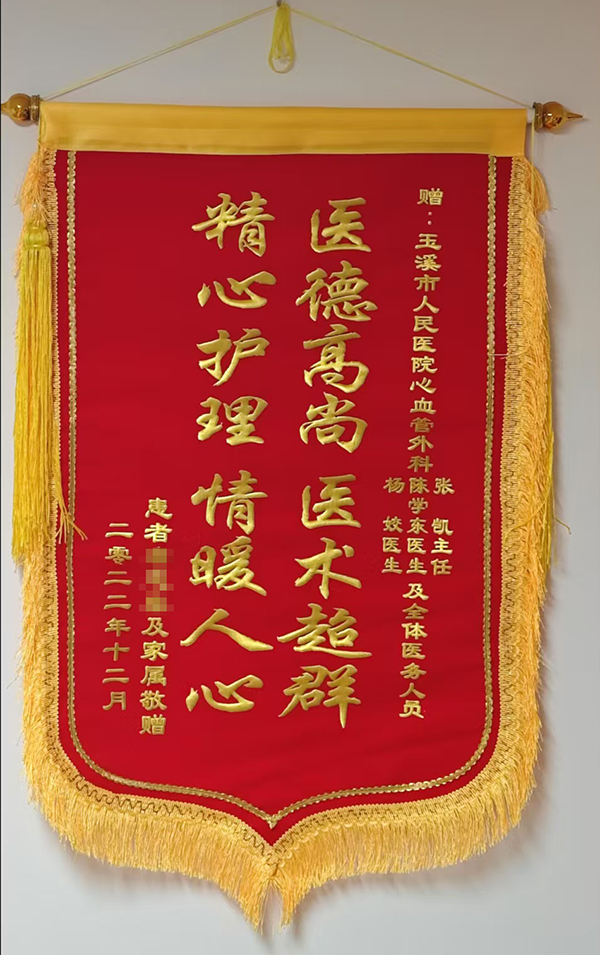 赠：玉溪市人民医院心血管外科
张凯主任
陈学东医生
杨姣医生
及全体医务人员
医德高尚 医术超群
精心护理 情暖人心
患者
及家属敬赠
二零二二年十二月